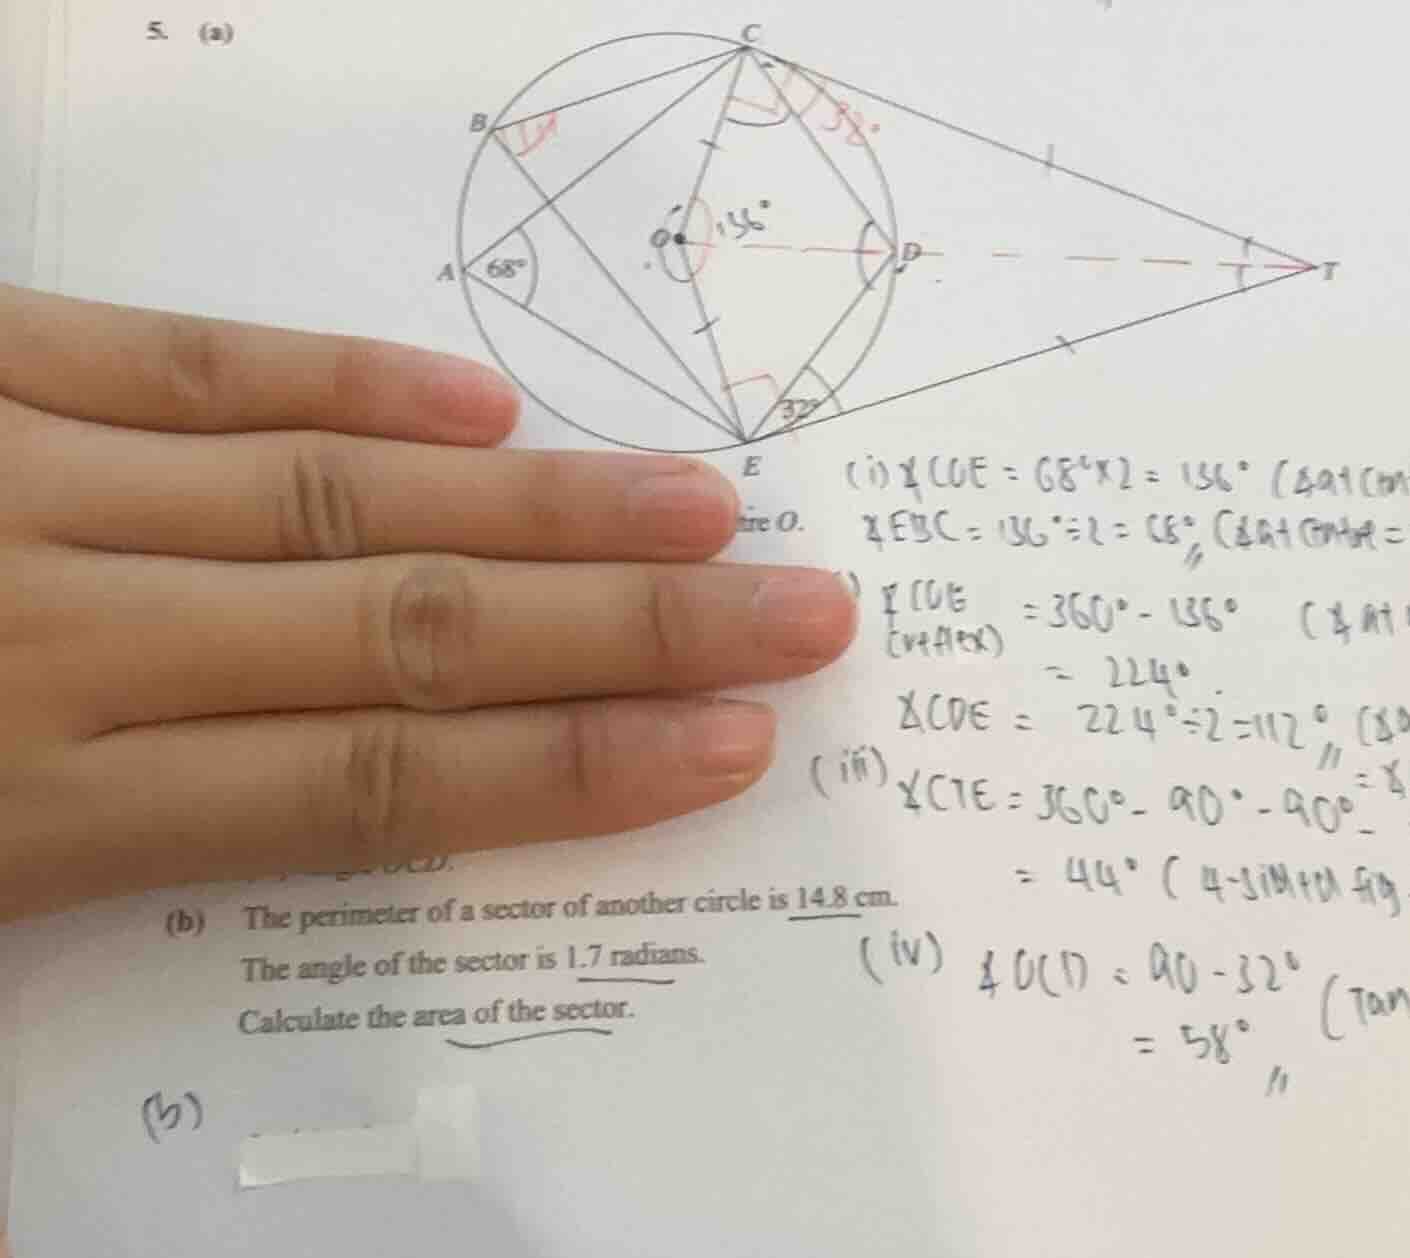 5. (a)
C
B
38°
O 136°
D
A 68°
T
32°
E
(i) ∡COE = 68° x 2 = 136° (∡ at cen
tre O.
∡EBC = 136° ÷ 2 = 68° (∡ at centre =
∡COE = 360° - 136° (∡ at
(reflex)
= 224°
∡CDE = 224° ÷ 2 = 112°
(iii) ∡CTE = 360° - 90° - 90° -
= 44° (4-sided fig
OCD.
(b) The perimeter of a sector of another circle is 14.8 cm.
The angle of the sector is 1.7 radians.
Calculate the area of the sector.
(iv) ∡OCD = 90 - 32° (Tan
= 58°
(b)